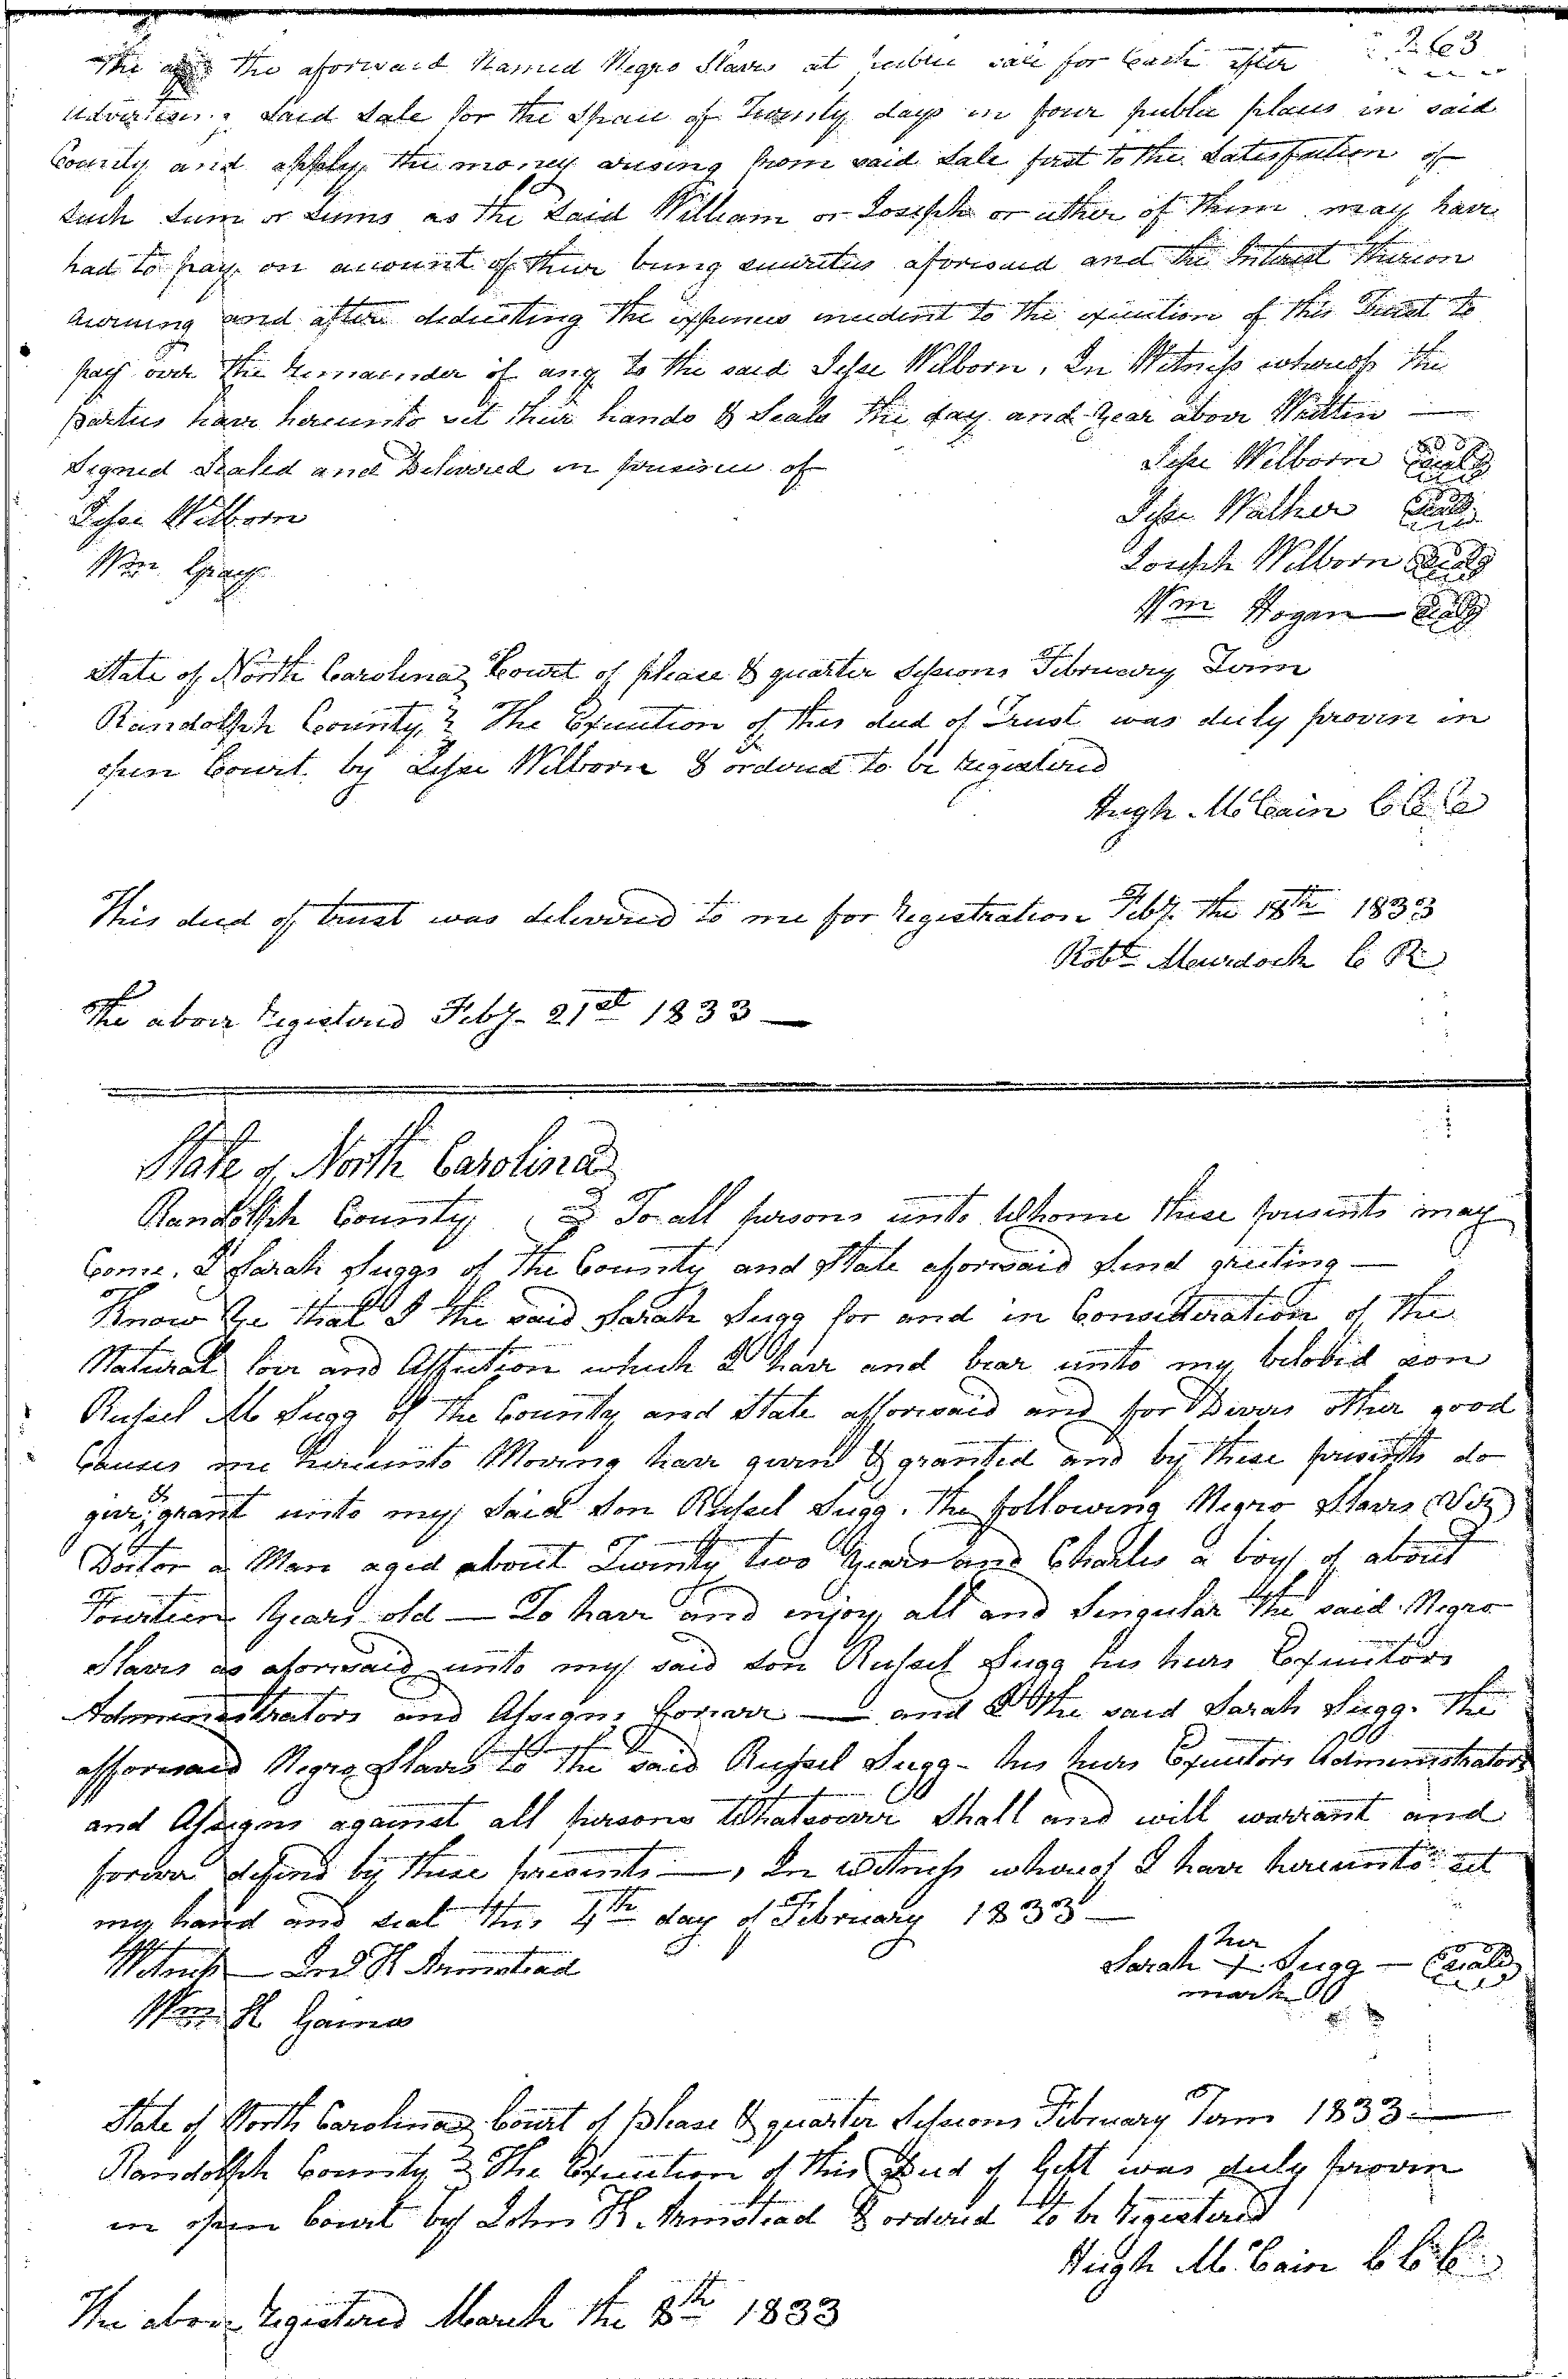 263
the the aforesaid Named Negro Slaves at public sale for Cash after
advertising said Sale for the Space of Twenty days in four public places in said
County and apply the money arising from said Sale first to the Satisfaction of
such Sum or Sums as the Said William or Joseph or either of them may have
had to pay on account of their being securities aforesaid and the Interest thereon
accruing and after deducting the expenses incident to the execution of this Trust to
pay over the Remainder if any to the said Jesse Wilborn. In Witness whereof the
parties have hereunto set their hands & Seals the day and Year above Written —
Signed Sealed and Delivered in presence of
Jesse Wilborn Seal
Jesse Wilborn
Jesse Walker Seal
Wm Gray
Joseph Wilborn Seal
Wm Hogan — Seal
State of North Carolina Court of please & quarter Sessions February Term
Randolph County } The Execution of this deed of Trust was duly proven in
open Court by Jesse Wilborn & ordered to be registered
Hugh McCain CCC
This deed of trust was delivered to me for Registration Feby. the 18th 1833
Robt Murdoch C R
The above registered Feby. 21st 1833 —
State of North Carolina
Randolph County } To all persons unto Whome these presents may
Come. I Sarah Suggs of the County and State aforesaid Send greeting —
Know Ye that I the said Sarah Sugg for and in Consideration of the
Natural love and Affection which I have and bear unto my belobed son
Russel M Sugg of the County and State afforesaid and for Divers other good
Causes me hereunto Moving have given & granted and by these presents do
give & grant unto my said Son Russel Sugg. the following Negro Slaves (Viz)
Doctor a Man aged about Twenty two Years and Charles a boy of about
Fourteen Years old — To have and enjoy all and Singular the said Negro
Slaves as aforesaid unto my said son Russel Sugg his heirs Executors
Administrators and Assigns forever — and I the said Sarah Sugg. the
afforesaid Negro Slaves to the said Russel Sugg - his heirs Executors Administrators
and Assigns against all persons Whatsoever Shall and will warrant and
forever defend by these presents —, In witness whereof I have hereunto set
my hand and seal this 4th day of February 1833 —
Witness — Jno H Armistead
her
Sarah + Sugg — Seal
mark
Wm H Gaines
State of North Carolina Court of please & quarter Sessions February Term 1833 —
Randolph County } The Execution of this Deed of Gift was duly proven
in open Court by John H. Armistead & ordered to be registered
Hugh McCain CCC
The above registered March the 8th 1833